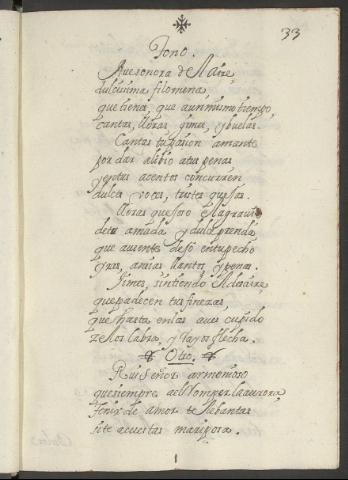 33
Tono.
Ave sonora del Aire
dulcissima filomena
que tienes, que aun mismo tiempo
cantas, lloras gimes, y buelas.
Cantas tu pasion amante
por dar alibio atus penas
y entus acentos concurren
dulces voces, tristes quejas.
lloras quejoso el agravio
detu amada y dulce prenda
que ausente dejó entu pecho
ansias llantos, y penas.
Gimes, sintiendo el desaire
que padecen tus finezas,
que hasta enlas aues cupido
zelos labra, y rayos flecha.
Otro.
Ruiseñor armonioso
que siempre al Romper la aurora
fenix de amor te lebantas
si te acuestas mariposa.